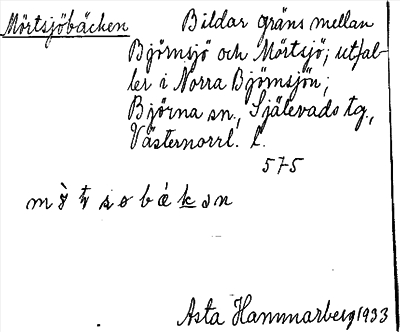 Mörtsjöbäcken Bildar gräns mellan
Björnsjö och Mörtsjö; utfal-
ler i Norra Björnsjön;
Björna sn., Själevads tg.,
Västernorrl. l.
575
Asta Hammarberg 1933